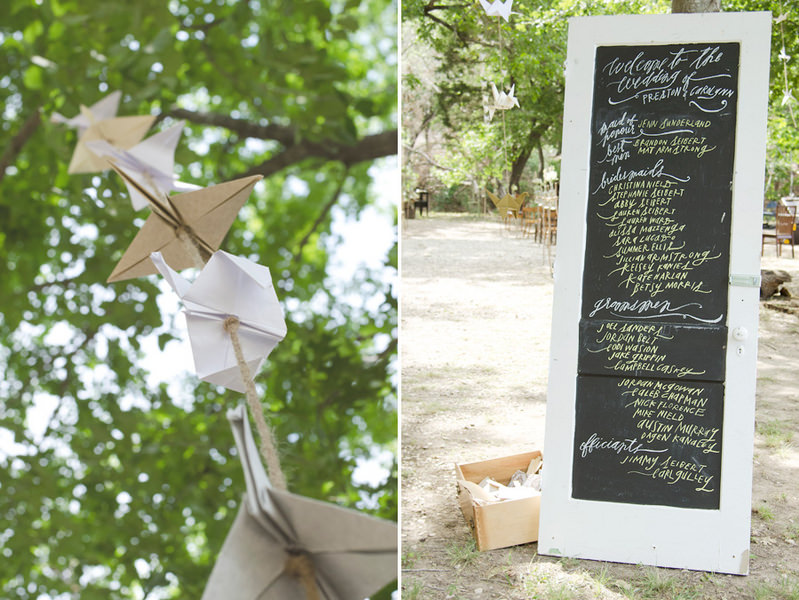 welcome to the
wedding of
PRESTON & CAROLYNN
maid of
honor
JENN SUNDERLAND
best
man
BRANDON SEIBERT
MAT ARMSTRONG
bridesmaids
CHRISTINA NIELD
STEPHANIE SEIBERT
ABBY SEIBERT
LAUREN SEIBERT
LAUREN WORD
ALISSA
SARA LUCAS
SUMMER ELLIS
JILLIAN ARMSTRONG
KELSEY
CAFE HARLAN
BETSY MORRIS
groomsmen
JOEL SANDERS
JORDAN BELT
CODI WASION
JAKE GRIFFIN
CAMPBELL CASNEY
JORDAN MCGOWAN
CALEB CHAPMAN
NICK FLORENCE
MIKE NIELD
AUSTIN MURRAY
OWEN KANALEY
officiants
JIMMY SEIBERT
CARL GULLEY